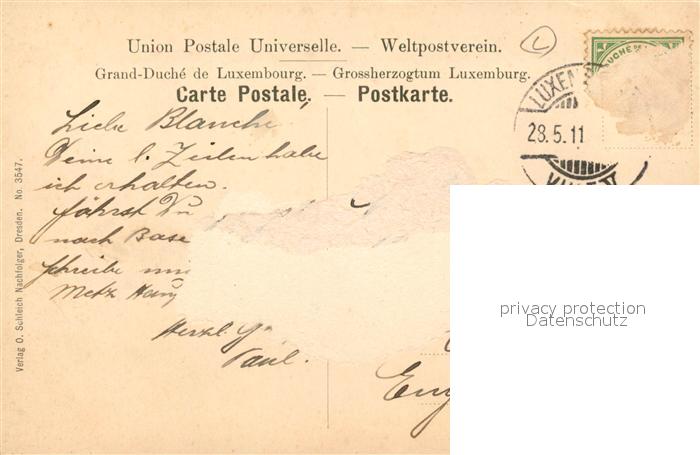 Union Postale Universelle. — Weltpostverein.
Grand-Duché de Luxembourg. — Grossherzogtum Luxemburg.
Carte Postale, — Postkarte.
LUXEM
28.5.11
Liebe Blanche,
Deine l. Zeilen habe
ich erhalten.
fährst Du
nach Base
schreibe
Metz
Herzl.
Paul.
Verlag O. Schleich Nachfolger, Dresden. No. 3547.
privacy protection
Datenschutz